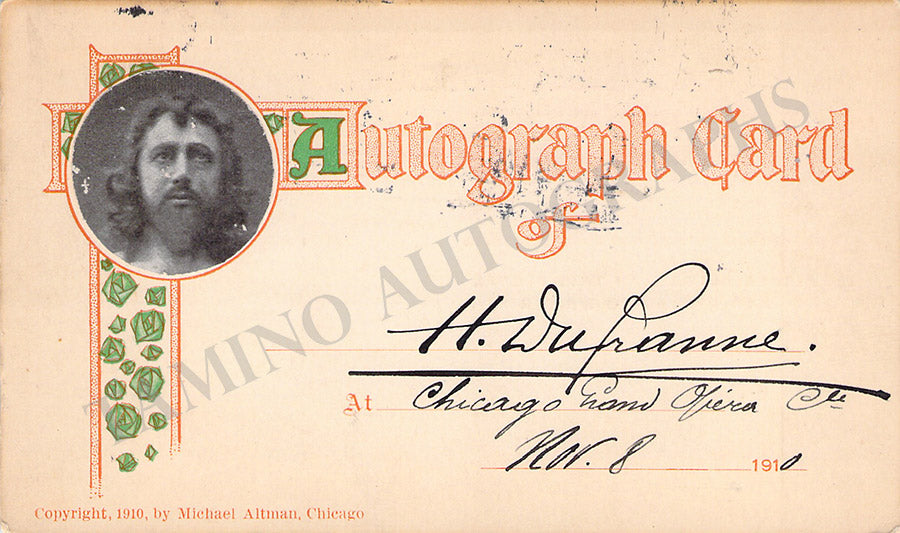 Autograph Card
of
H. Dufranne.
At Chicago Grand Opera Cie
Nov. 8 1910
Copyright, 1910, by Michael Altman, Chicago
TAMINO AUTOGRAPHS